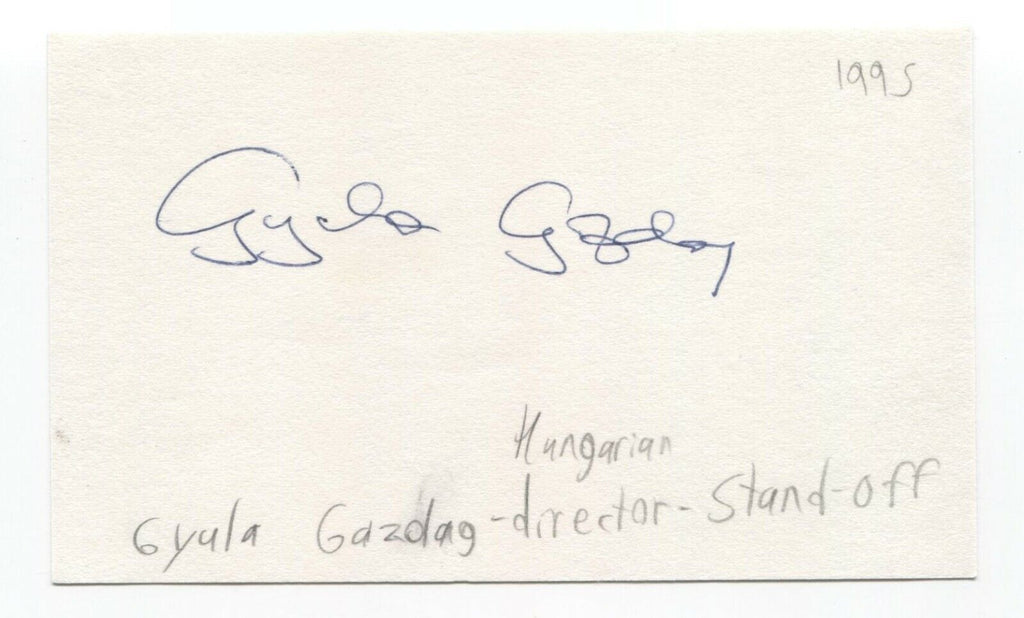 1995
Gyula Gazdag
Hungarian
Gyula Gazdag - director - Stand-off